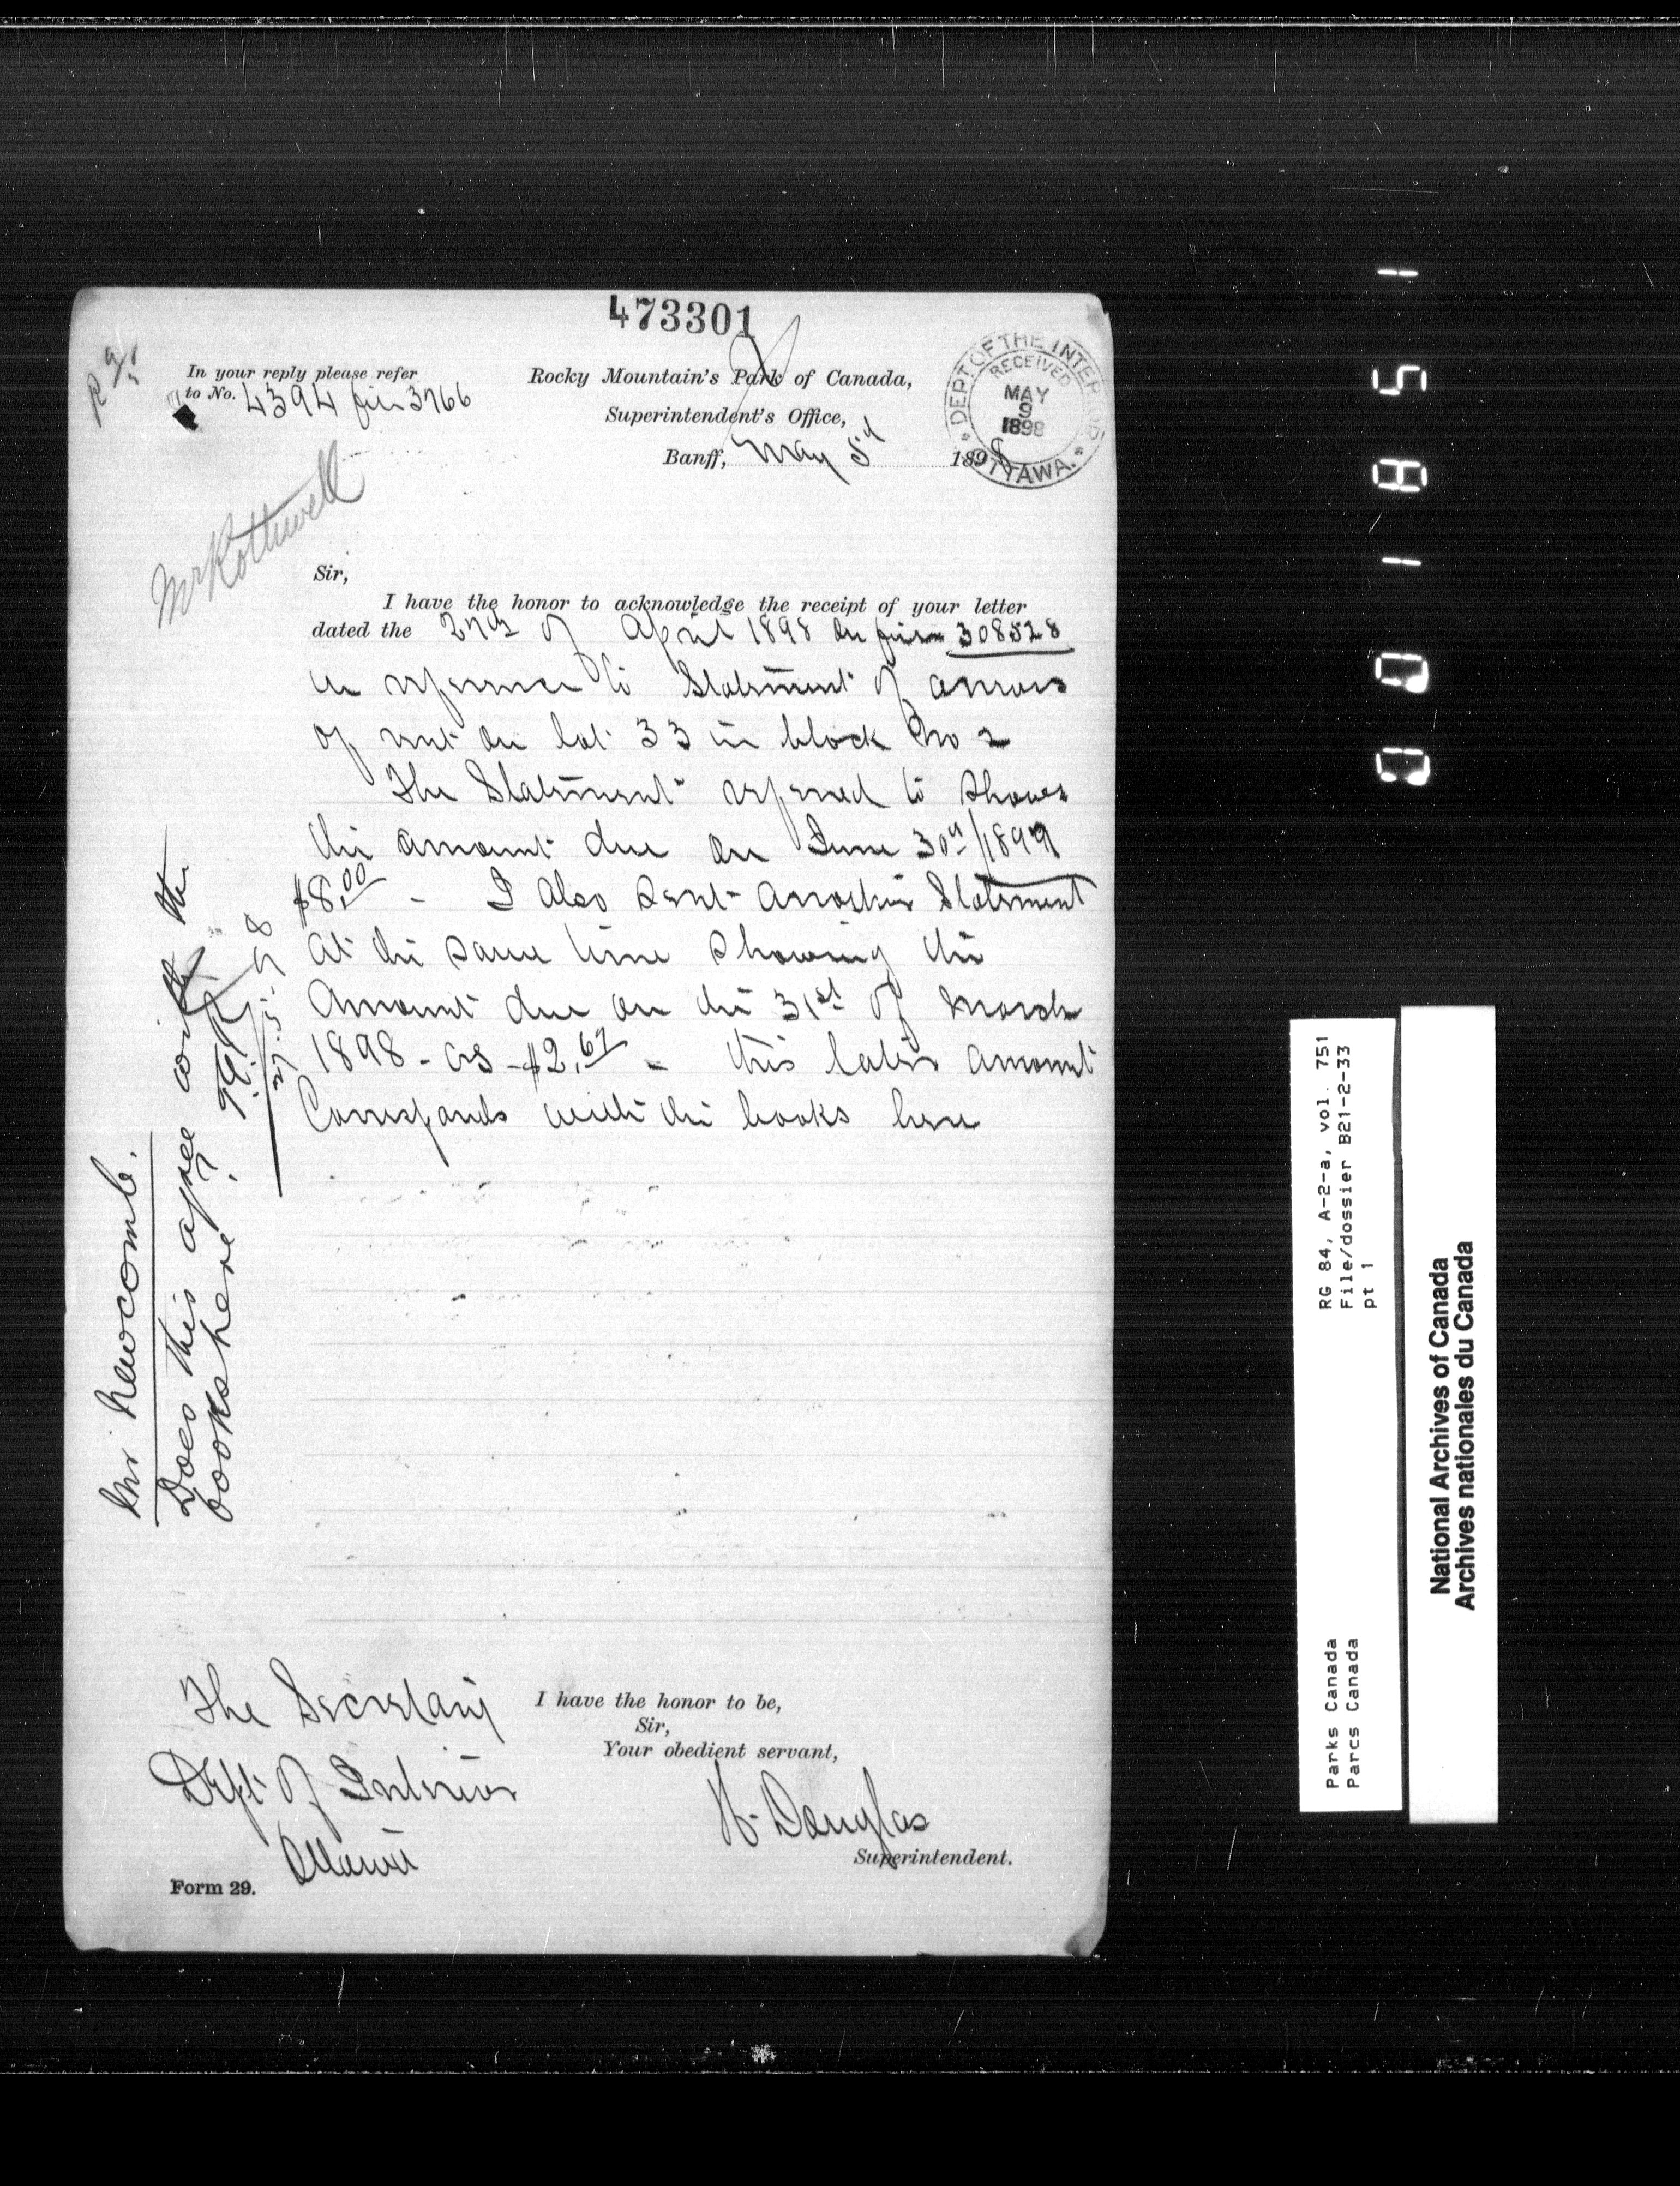 473301
In your reply please refer
to No. 4394 file 3766
Rocky Mountain's Park of Canada,
Superintendent's Office,
Banff, May 5th 1898
DEPT OF THE INTERIOR
RECEIVED
MAY
9
1898
OTTAWA.
Mr Rothwell
Sir,
I have the honor to acknowledge the receipt of your letter
dated the 27th of April 1898 on file 308528
in reference to Statement of arrears
of rent on lot 33 in block No 2
The Statement referred to shows
the amount due on June 30th/1899
$8.00 - I also sent another Statement
at the same time showing the
amount due on the 31st of March
1898 - as - $2.67 - this later amount
Corresponds with the books here
Mr Newcomb.
Does this agree with the
books here?
27.5.98
The Secretary
Dept of Interior
Ottawa
I have the honor to be,
Sir,
Your obedient servant,
H Douglas
Superintendent.
Form 29.
RG 84, A-2-a, vol. 751
File/dossier B21-2-33
pt 1
Parks Canada
Parcs Canada
National Archives of Canada
Archives nationales du Canada